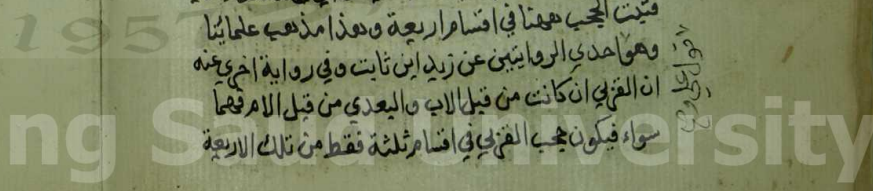 فثبت الحجب ههنا في اقسام اربعة وهذا مذهب علمائنا
وهو احدي الروايتين عن زيد ابن ثابت وفي رواية اخري عنه
ان القربي ان كانت من قبل الاب والبعدي من قبل الام فهما
سواء فيكون حجب القربي في اقسام ثلثة فقط من تلك الاربعة
قول علي
1957
ng Sa University